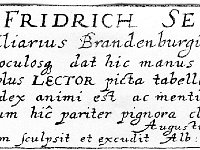 FRIDRICH SE
liarius Brandenburgi
oculosq dat hic manus
plus LECTOR picta tabell
dex animi est ac menti
um hic pariter pignora cl
Augusti
m sculpsit et excudit Alb: